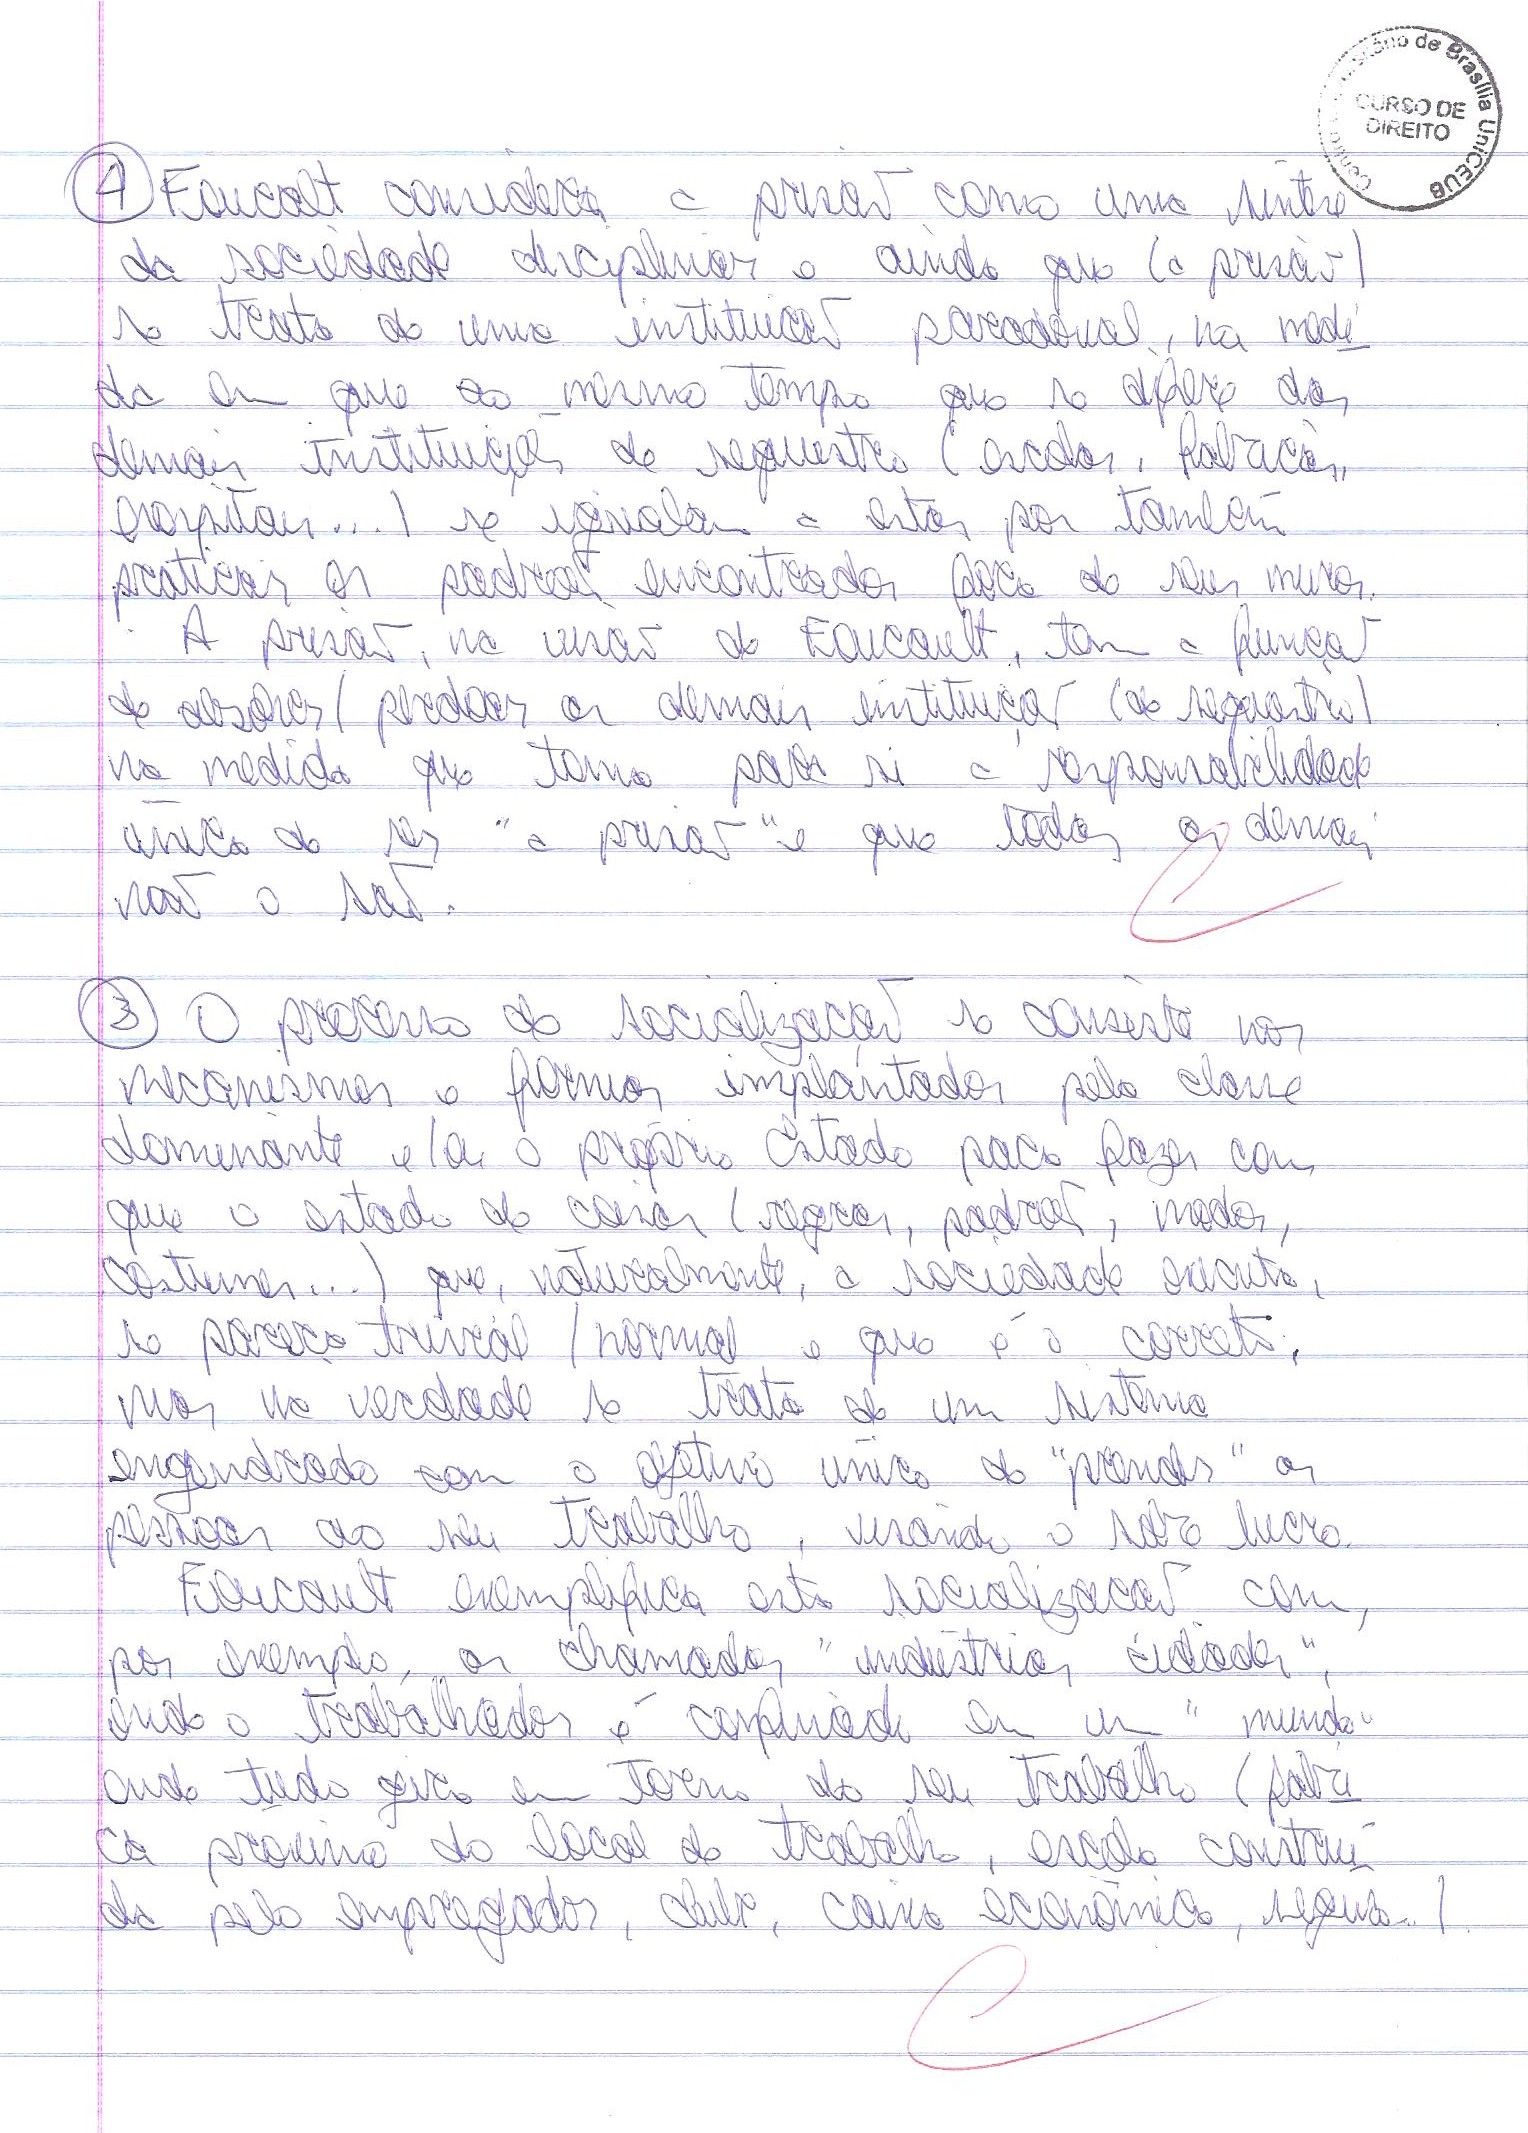 Centro de Brasília UniCEUB
CURSO DE
DIREITO
4 Foucalt considera a prisão como uma síntese
da sociedade disciplinar e ainda que (a prisão)
se trata de uma instituição paradoxal, na medi
da em que ao mesmo tempo que se difere das
demais instituições de sequestro (escolas, fabricas,
hospitais...) se igualam a estas por também
praticar os padrões encontrados fora de seus muros.
A prisão, na visão de Foucault, tem a função
de absolver / perdoar as demais instituições (de sequestro)
na medida que toma para si a responsabilidade
única de ser "a prisão" e que todas as demais
não o são.
3 O processo de socialização se consiste nos
mecanismos e formas implantados pela classe
dominante e/ou o próprio Estado para fazer com
que o estado de coisas (regras, padrões, modos,
costumes...) que, naturalmente, a sociedade executa,
se pareça trivial / normal e que é o correto,
mas na verdade se trata de um sistema
engendrado com o objetivo único de "prender" as
pessoas ao seu trabalho, visando o lucro.
Foucault exemplifica esta socialização com,
por exemplo, as chamadas "indústrias cidades",
onde o trabalhador é confinado em um "mundo"
onde tudo gira em torno do seu trabalho (
próximo do local de trabalho, escola construí
da pelo empregador, clube, caixa econômica, seguro...).